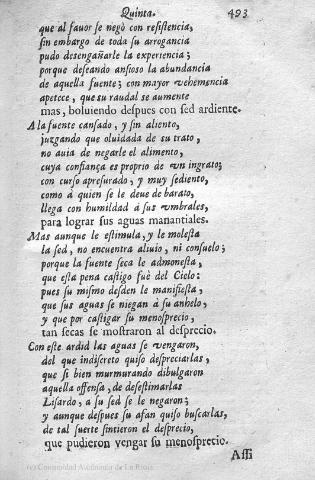 Quinta. 493
que al fauor se negò con resistencia,
sin embargo de toda su arrogancia
pudo desengañarle la experiencia;
porque deseando ansioso la abundancia
de aquella fuente; con mayor vehemencia
apetece, que su raudal se aumente
mas, boluiendo despues con sed ardiente.
A la fuente cansado, y sin aliento,
juzgando que oluidada de su trato,
no auia de negarle el alimento,
cuya confiança es proprio de vn ingrato;
con curso apresurado, y muy sediento,
como à quien se le deue de barato,
llega con humildad à sus vmbrales,
para lograr sus aguas manantiales.
Mas aunque le estimula, y le molesta
la sed, no encuentra aliuio, ni consuelo;
porque la fuente seca le admonesta,
que esta pena castigo fuè del Cielo:
pues su mismo desden le manifiesta,
que sus aguas se niegan à su anhelo,
y que por castigar su menosprecio,
tan secas se mostraron al desprecio.
Con este ardid las aguas se vengaron,
del que indiscreto quiso despreciarlas,
que si bien murmurando dibulgaron
aquella offensa, de desestimarlas
Lisardo, a su sed se le negaron;
y aunque despues su afan quiso buscarlas,
de tal suerte sintieron el desprecio,
que pudieron vengar su menosprecio.
Assi
(c) Comunidad Autónoma de La Rioja